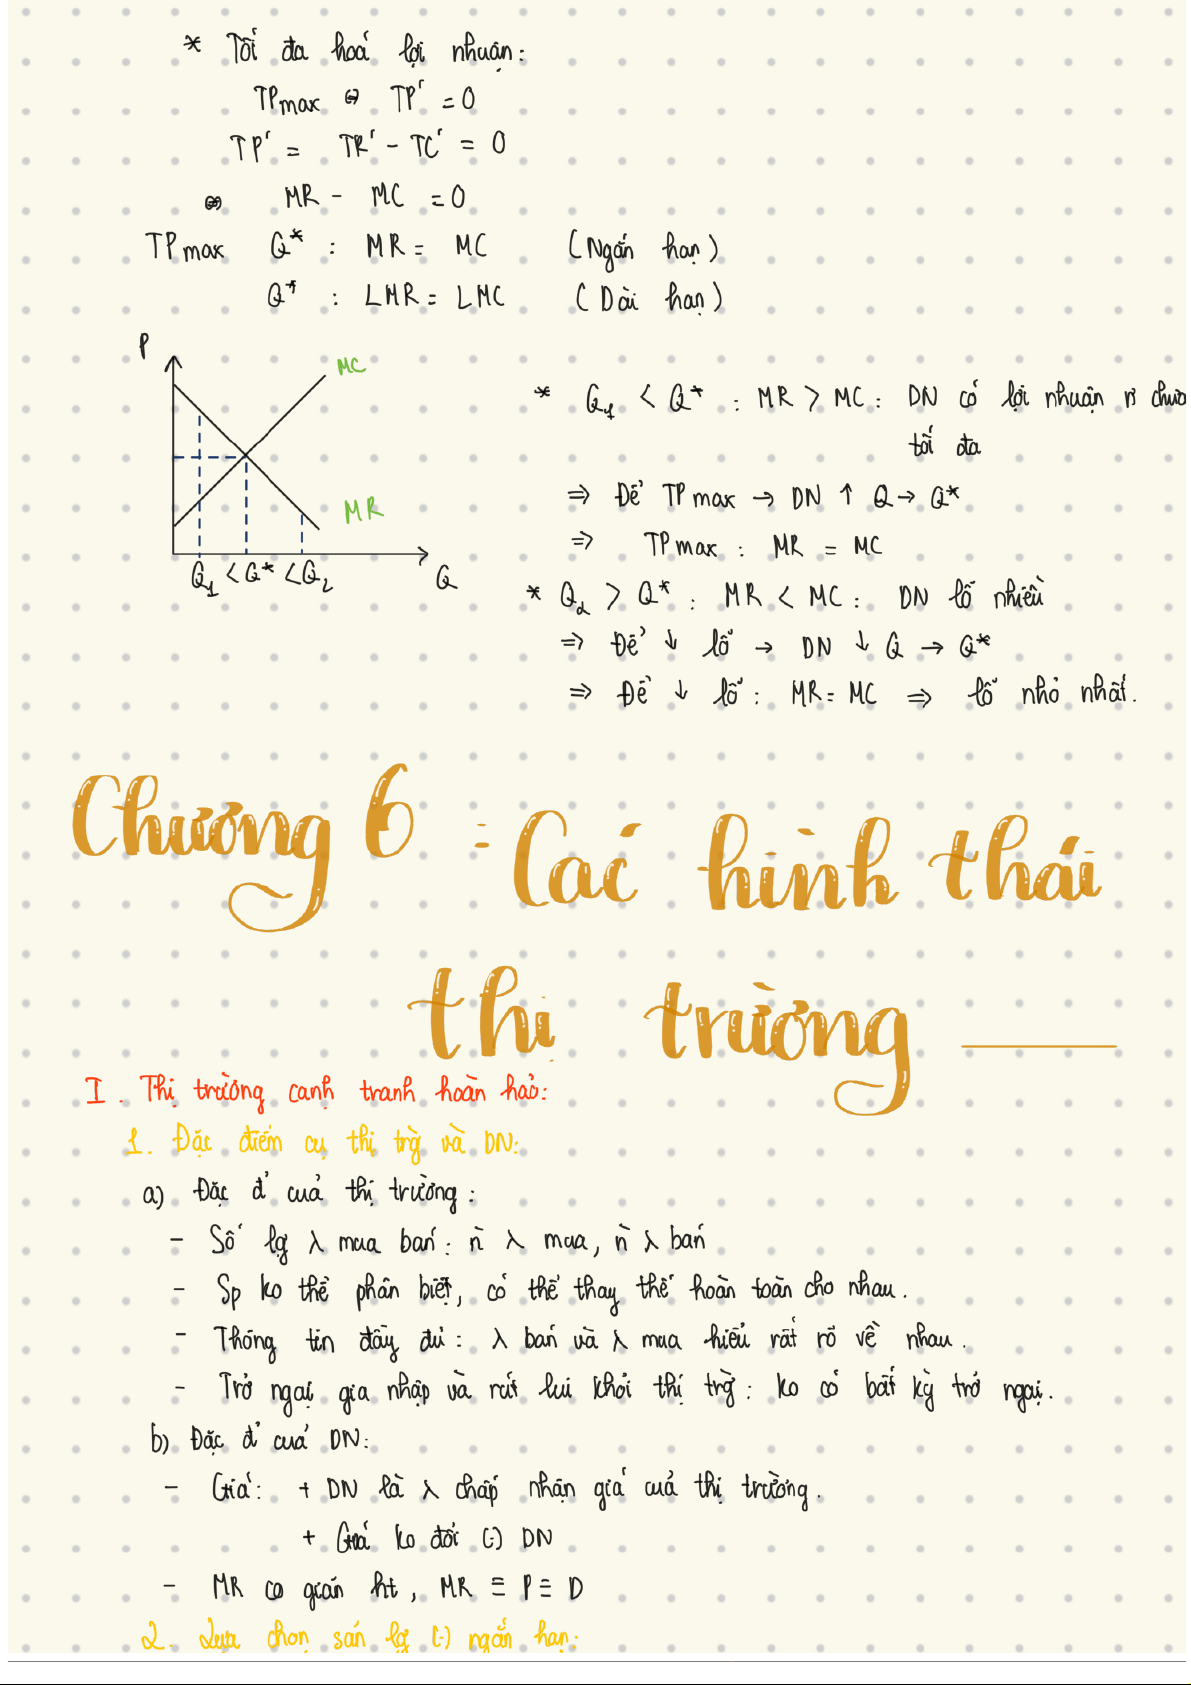 * Tối đa hoá lợi nhuận:
TPmax ⇔ TP' = 0
TP' = TR' - TC' = 0
⇔ MR - MC = 0
TPmax Q* : MR = MC (Ngắn hạn)
Q* : LMR = LMC (Dài hạn)
P
MC
MR
Q1 < Q* < Q2
Q
* Q1 < Q* : MR > MC : DN có lợi nhuận
tối đa
⇒ Để TPmax → DN ↑ Q → Q*
⇒ TPmax : MR = MC
* Q2 > Q* : MR < MC : DN lỗ nhiều
⇒ Để ↓ lỗ → DN ↓ Q → Q*
⇒ Để ↓ lỗ : MR = MC ⇒ lỗ nhỏ nhất.
Chương 6 : Các hình thái
thị trường
I. Thị trường cạnh tranh hoàn hảo:
1. Đặc điểm cụ thị trg̀ và DN:
a) Đặc đ' của thị trường:
- Số lg λ mua bán : n̄ λ mua, n̄ λ bán
- Sp ko thể phân biệt, có thể thay thế hoàn toàn cho nhau.
- Thông tin đầy đủ : λ bán và λ mua hiểu rất rõ về nhau.
- Trở ngại gia nhập và rút lui khỏi thị trg̀ : ko có bất kỳ trở ngại.
b) Đặc đ' của DN:
- Giá : + DN là λ chấp nhận giá của thị trường.
+ Giá ko đổi (-) DN
- MR co giãn ht, MR ≡ P ≡ D
2. Lựa chọn sản lg (-) ngắn hạn: